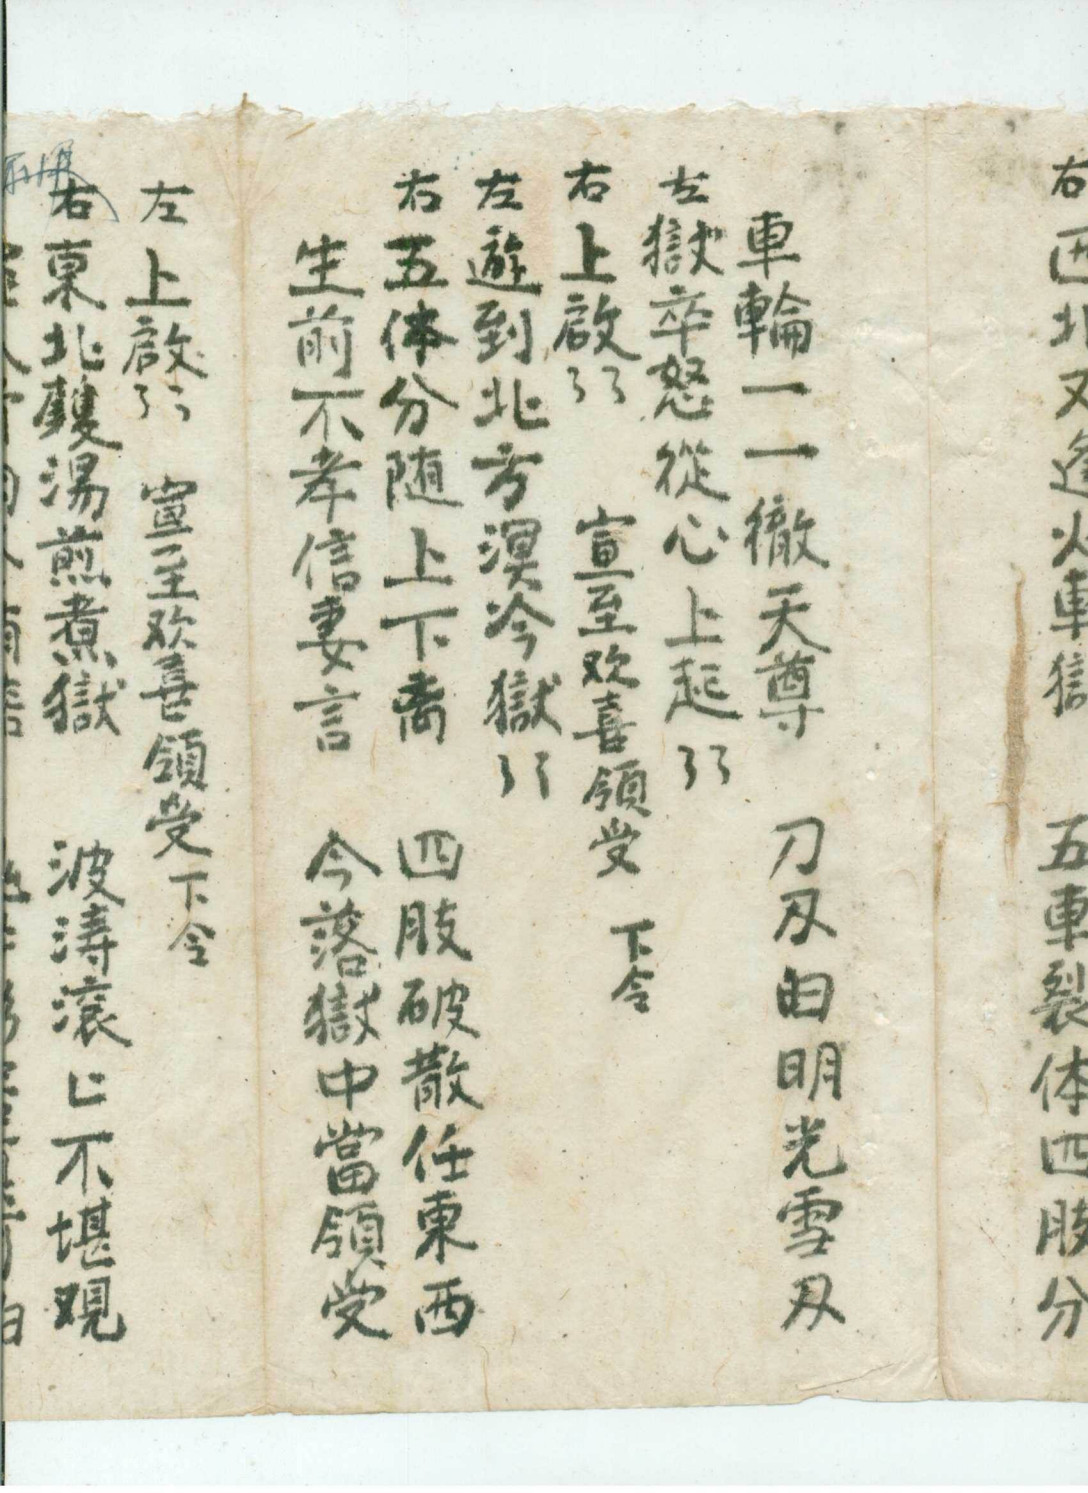 右 西北又逢火車獄 五車裂体四肢分
車輪一一徹天尊 刀刃白明光雪刃
左 獄卒怒從心上起了了
右 上啟了了 宣至欢喜領受 下令
左 遊到北方溟冷獄了了
右 五体分随上下离 四肢破散任東西
生前不孝信妻言 今落獄中當領受
左 上啟了了 宣至欢喜領受 下令
右 東北鑊湯煎煮獄 波濤滾匕不堪观